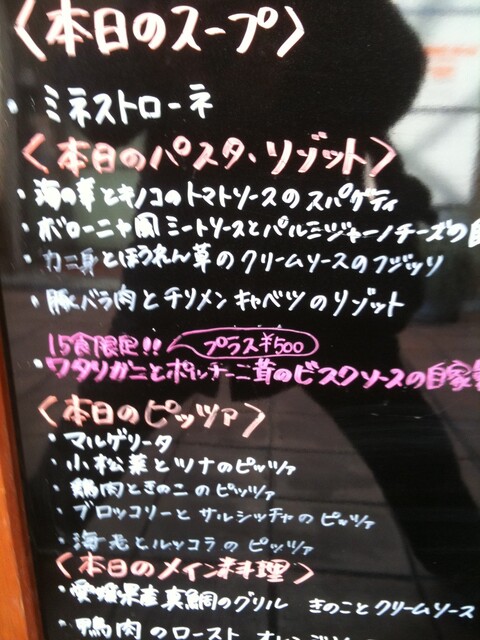 〈本日のスープ〉
・ミネストローネ
〈本日のパスタ・リゾット〉
・海の幸とキノコのトマトソースのスパゲティ
・ボローニャ風ミートソースとパルミジャーノチーズの自
・カニ身とほうれん草のクリームソースのフジッリ
・豚バラ肉とチリメンキャベツのリゾット
15食限定!! プラス¥500
・ワタリガニとポルチーニ茸のビスクソースの自家
〈本日のピッツァ〉
・マルゲリータ
・小松菜とツナのピッツァ
・鶏肉ときのこのピッツァ
・ブロッコリーとサルシッチャのピッツァ
・海老とルッコラのピッツァ
〈本日のメイン料理〉
・愛媛県産真鯛のグリル きのことクリームソース
・鴨肉のロースト オレンジ